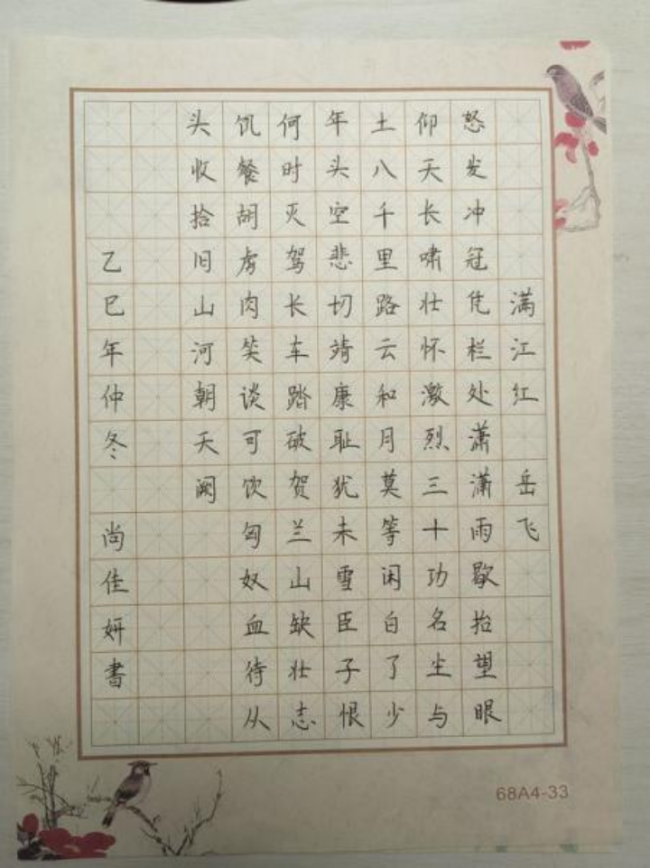 满江红 岳飞
怒发冲冠凭栏处潇潇雨歇抬望眼
仰天长啸壮怀激烈三十功名尘与
土八千里路云和月莫等闲白了少
年头空悲切靖康耻犹未雪臣子恨
何时灭驾长车踏破贺兰山缺壮志
饥餐胡虏肉笑谈可饮匈奴血待从
头收拾旧山河朝天阙
乙巳年仲冬 尚佳妍書
68A4-33